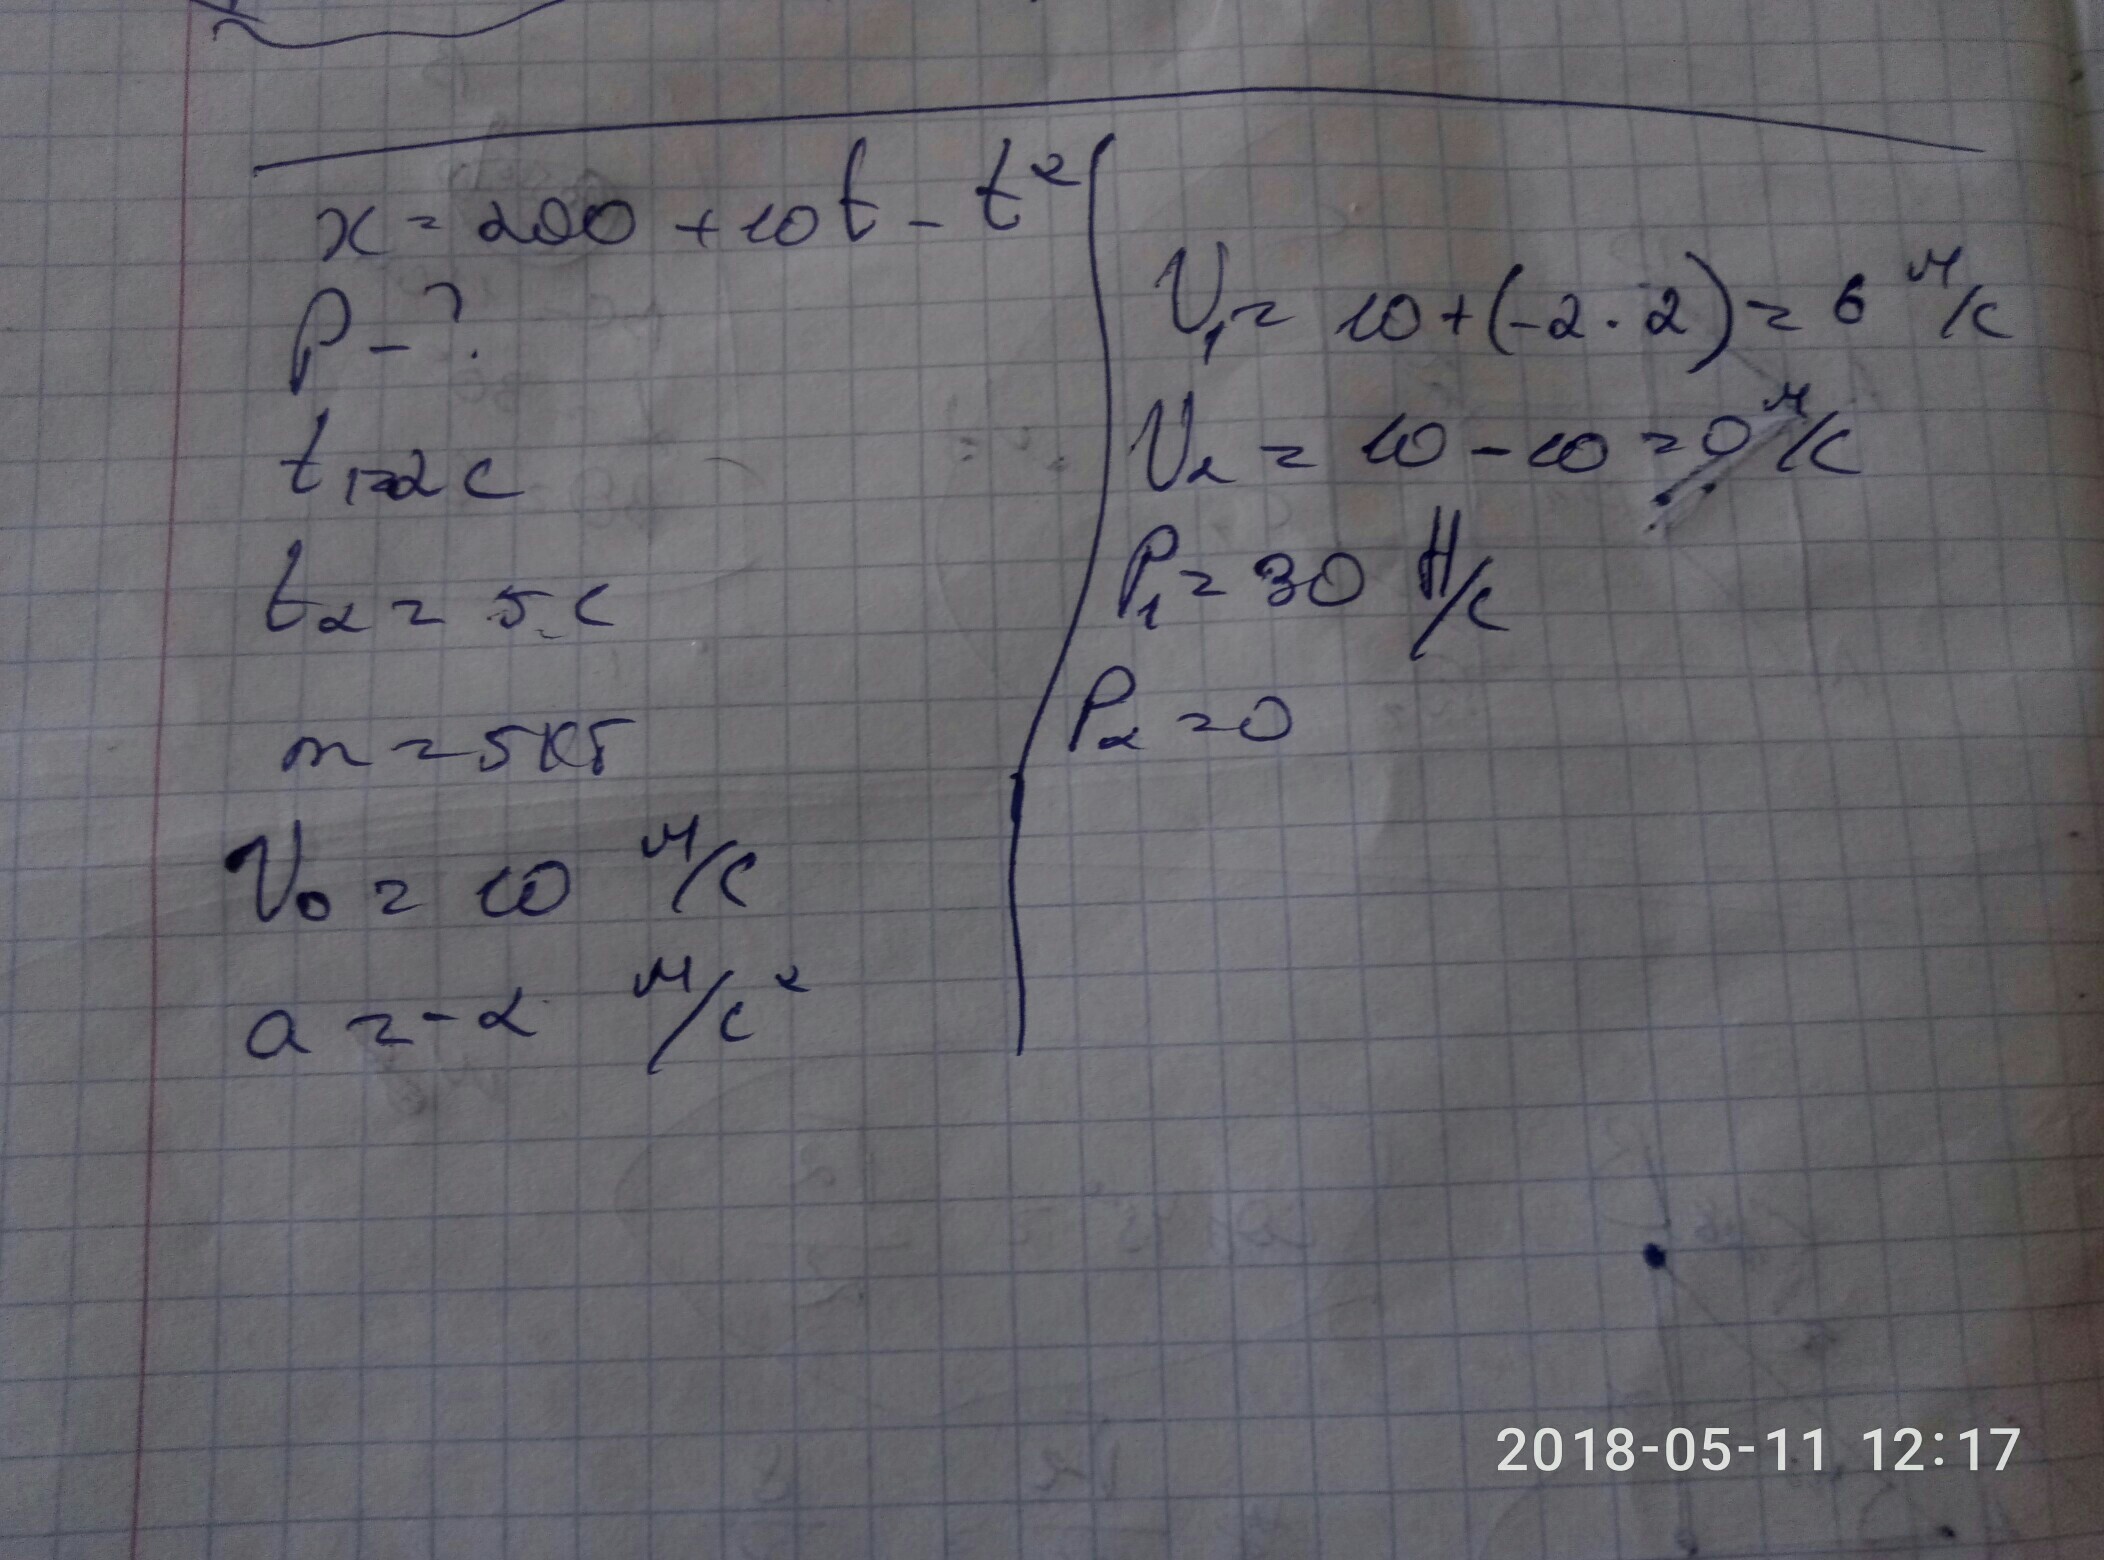 x = 200 + 10t - t²
P - ?
t₁ = 2 с
t₂ = 5 с
m = 5 кг
V₀ = 10 м/с
a = -2 м/с²
V₁ = 10 + (-2 · 2) = 6 м/с
V₂ = 10 - 10 = 0 м/с
P₁ = 30 Н/с
P₂ = 0
2018-05-11 12:17